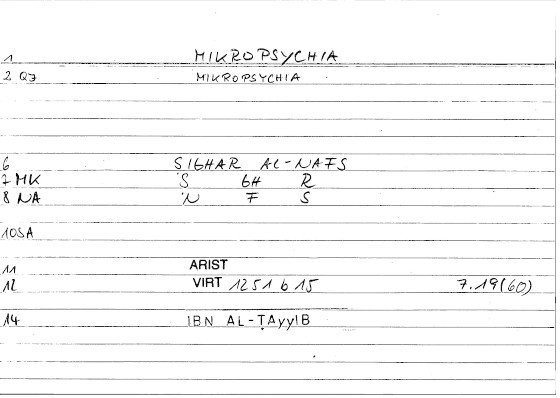 1 MIKROPSYCHIA
2 QJ MIKROPSYCHIA
6 SIGHAR AL-NAFS
7 MK S GH R
8 NA N F S
10SA
11 ARIST
12 VIRT 1251 b 15 7.19(60)
14 IBN AL-ṬAyyIB